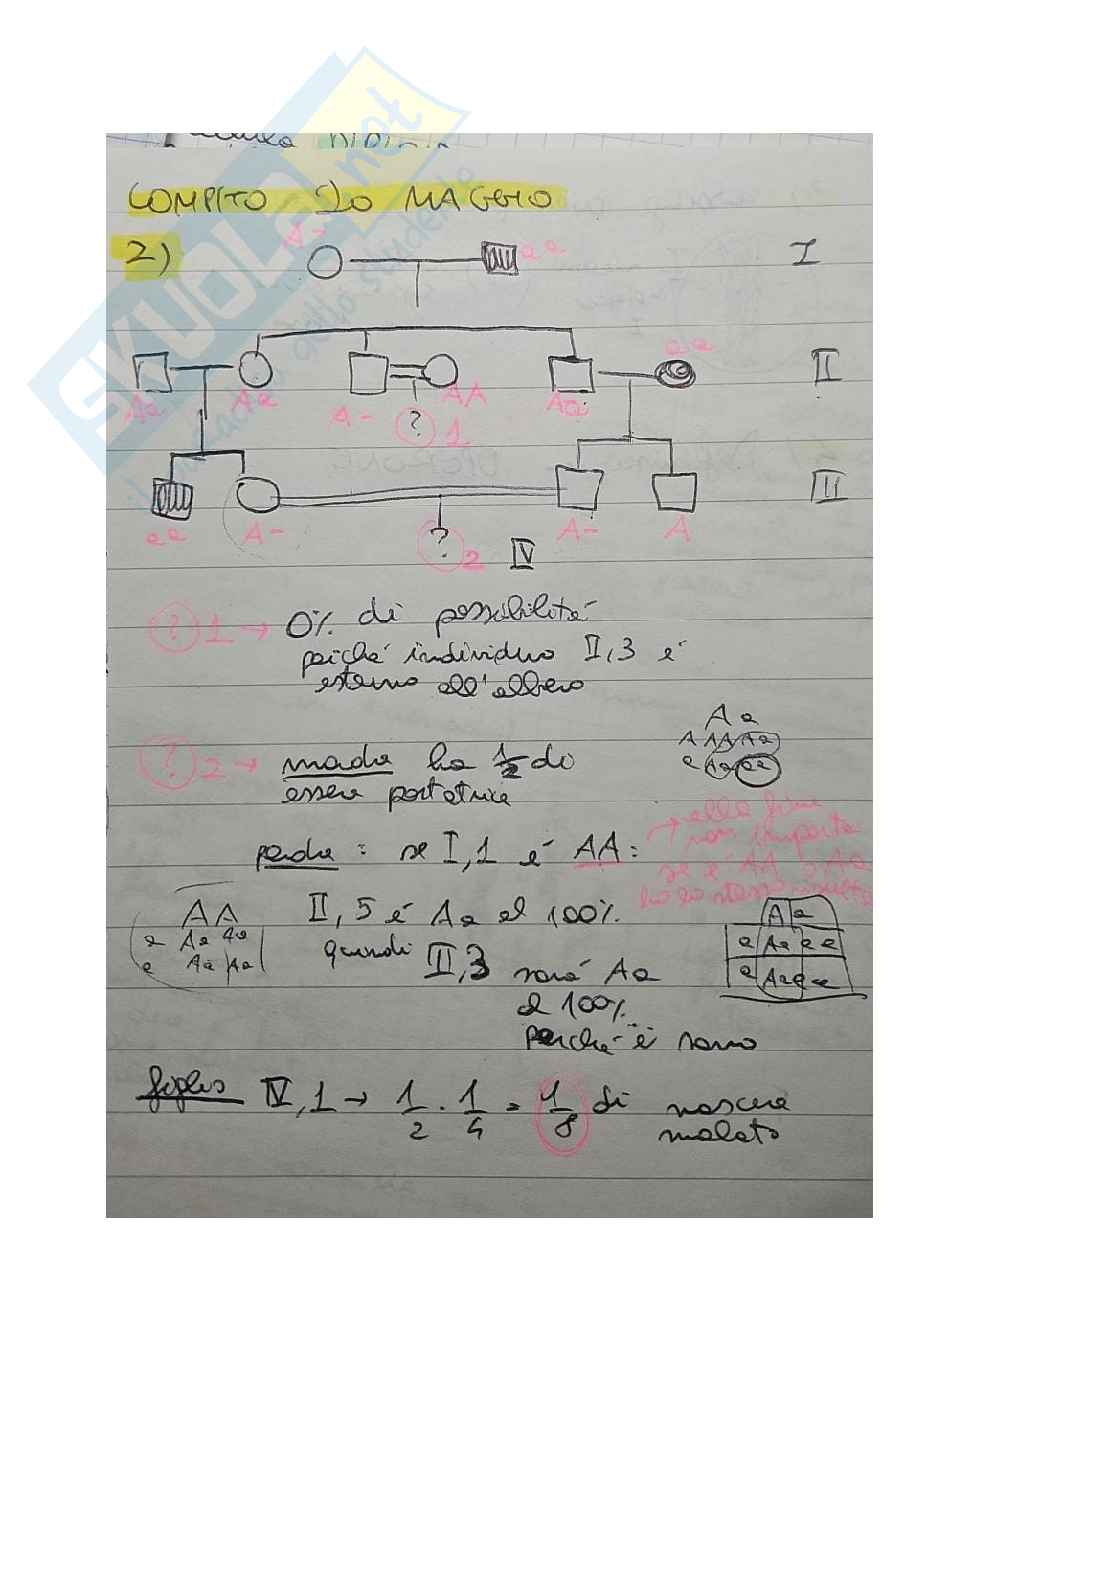 COMPITO 20 MAGGIO
2)
A-
aa
I
aa
II
Aa
Aa
A-
AA
Aa
?
1
III
aa
A-
?
2
A-
A
IV
? 1 → 0% di possibilità
poiché individuo II,3 é
esterno all'albero
A a
A AA Aa
a Aa aa
? 2 → madre ha 1/2 di
essere portatrice
→ alla fine
non importa
se è AA o Aa
ho lo stesso
padre : se I,1 é AA:
II, 5 é Aa al 100%.
quindi II,3 sará Aa
al 100%
perché é sano
AA
a Aa Aa
a Aa Aa
A a
a Aa aa
a Aa aa
figlio IV,1 → 1/2 . 1/4 = 1/8 di nascere
malato
SKUOLA.net